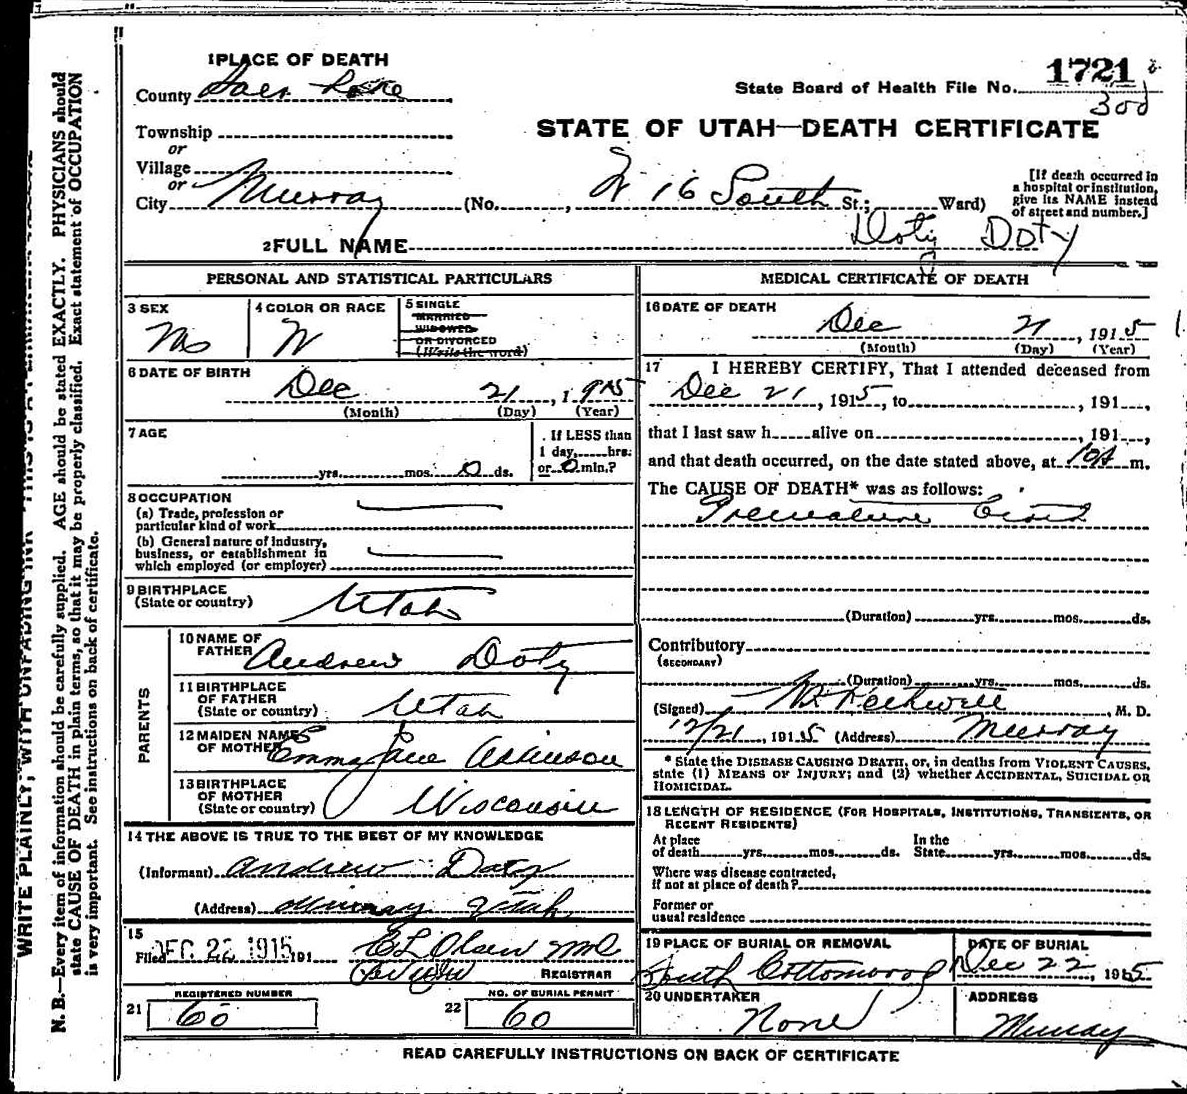 1 PLACE OF DEATH
County Salt Lake
State Board of Health File No. 1721
300
Township
or
Village
or
City Murray (No. , W 16 South St.; Ward)
STATE OF UTAH—DEATH CERTIFICATE
[If death occurred in a hospital or institution, give its NAME instead of street and number.]
2 FULL NAME Doty DOTY
PERSONAL AND STATISTICAL PARTICULARS
3 SEX
M
4 COLOR OR RACE
W
5 SINGLE
MARRIED
WIDOWED
OR DIVORCED
(Write the word)
6 DATE OF BIRTH
Dec 21, 1915
(Month) (Day) (Year)
7 AGE
yrs. mos. 0 ds.
If LESS than
1 day, hrs.
or 0 min.?
8 OCCUPATION
(a) Trade, profession or
particular kind of work
(b) General nature of industry,
business, or establishment in
which employed (or employer)
9 BIRTHPLACE
(State or country) Utah
PARENTS
10 NAME OF
FATHER Andrew Doty
11 BIRTHPLACE
OF FATHER
(State or country) Utah
12 MAIDEN NAME
OF MOTHER Emma Jane Atkinson
13 BIRTHPLACE
OF MOTHER
(State or country) Wisconsin
14 THE ABOVE IS TRUE TO THE BEST OF MY KNOWLEDGE
(Informant) Andrew Doty
(Address) Murray Utah
15
Filed DEC 22 1915 191 C L Olsen MD
REGISTRAR
REGISTERED NUMBER
21 60
NO. OF BURIAL PERMIT
22 60
MEDICAL CERTIFICATE OF DEATH
16 DATE OF DEATH
Dec 21, 1915
(Month) (Day) (Year)
17 I HEREBY CERTIFY, That I attended deceased from
Dec 21, 1915, to , 191 ,
that I last saw h alive on , 191 ,
and that death occurred, on the date stated above, at 10A m.
The CAUSE OF DEATH* was as follows:
Premature Birth
(Duration) yrs. mos. ds.
Contributory
(SECONDARY)
(Duration) yrs. mos. ds.
(Signed) Rothwell, M. D.
12/21, 1915 (Address) Murray
* State the DISEASE CAUSING DEATH, or, in deaths from VIOLENT CAUSES,
state (1) MEANS OF INJURY; and (2) whether ACCIDENTAL, SUICIDAL OR
HOMICIDAL.
18 LENGTH OF RESIDENCE (FOR HOSPITALS, INSTITUTIONS, TRANSIENTS, OR
RECENT RESIDENTS)
At place In the
of death yrs. mos. ds. State yrs. mos. ds.
Where was disease contracted,
if not at place of death?
Former or
usual residence
19 PLACE OF BURIAL OR REMOVAL
South Cottonwood
DATE OF BURIAL
Dec 22, 1915
20 UNDERTAKER
None
ADDRESS
Murray
READ CAREFULLY INSTRUCTIONS ON BACK OF CERTIFICATE
N. B.—Every item of information should be carefully supplied. AGE should be stated EXACTLY. PHYSICIANS should
state CAUSE OF DEATH in plain terms, so that it may be properly classified. Exact statement of OCCUPATION
is very important. See instructions on back of certificate.
WRITE PLAINLY, WITH UNFADING INK